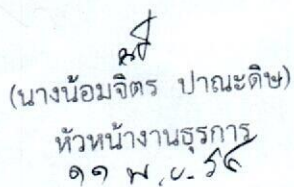 (นางน้อมจิตร ปาณะดิษ)
หัวหน้างานธุรการ
๑๑ พ.ย. ๕๘